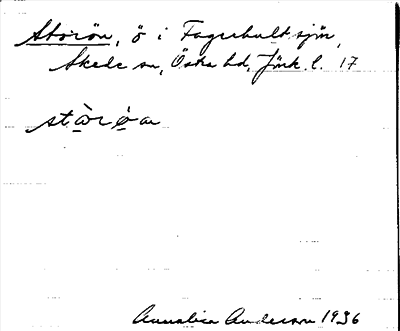 Storön, ö i Fagerhultsjön,
Skede sn, Östra hd, Jönk. l. 17
stòrö̀n
Annalisa Anderson 1936